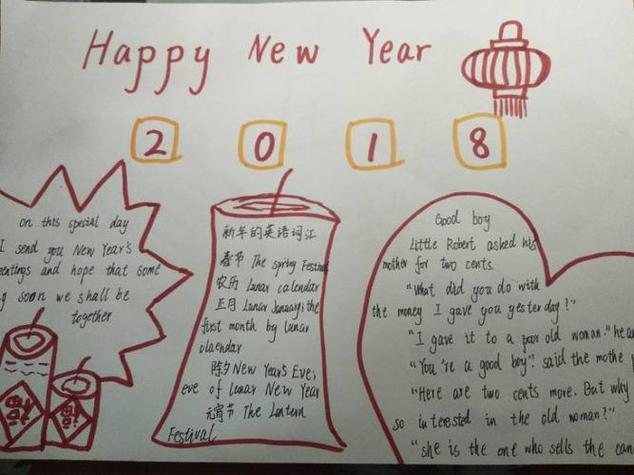 Happy New Year
2018
on this special day
I send you New Year's
and hope that some
soon we shall be
together
新年的英语词汇
春节 The spring Festival
农历 lunar calendar
正月 Lunar January; the
first month by lunar
claendar
除夕 New Year's Eve;
eve of Lunar New Year
元宵节 The Lintern
Festival
Good boy
Little Robert asked his
mother for two cents.
"What did you do with
the money I gave you yesterday?"
"I gave it to a poor old woman." he
"You're a good boy". said the mothe
"Here are two cents more. But why
so interested in the old woman?"
"she is the one who sells the